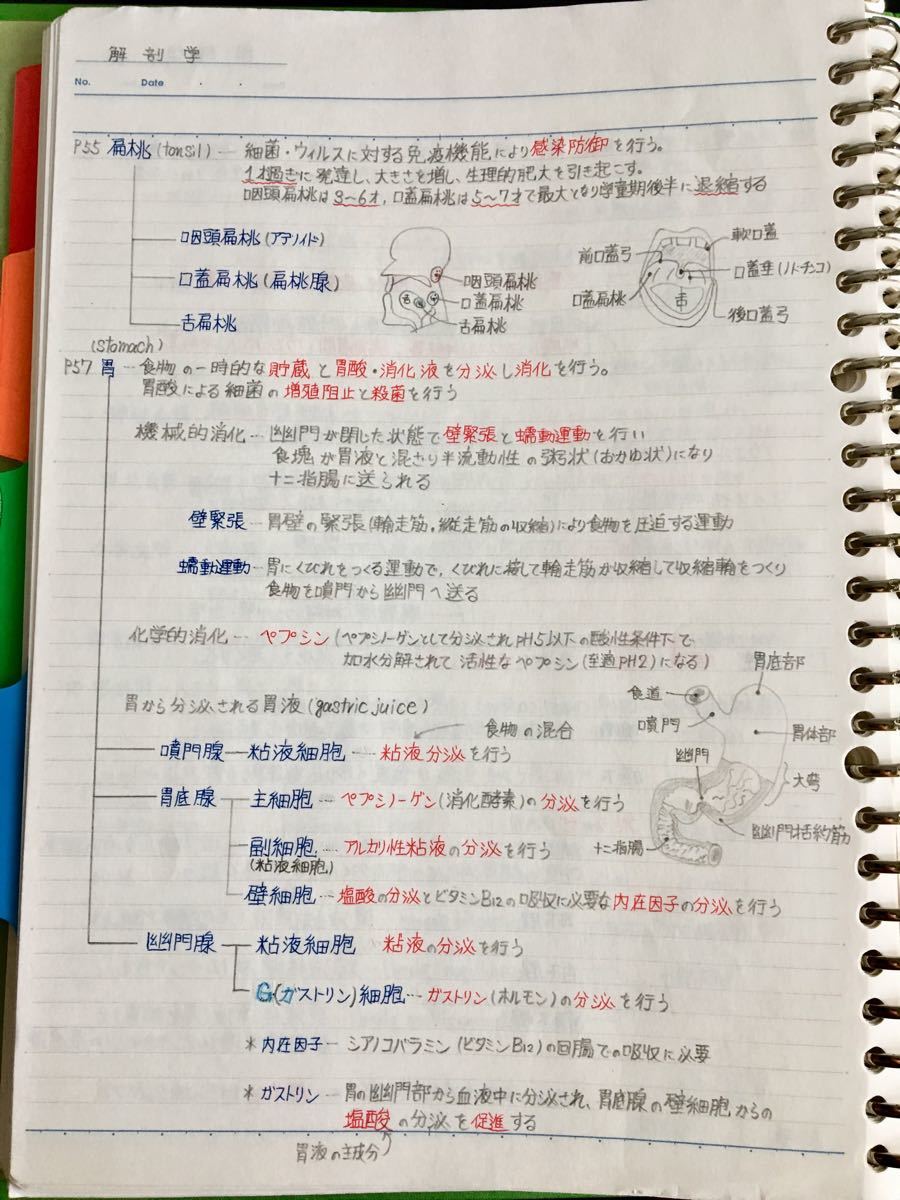 解剖学
No. Date
P55 扁桃 (tonsil) ― 細菌・ウィルスに対する免疫機能により感染防御を行う。
1才過ぎに発達し、大きさを増し、生理的肥大を引き起こす。
咽頭扁桃は3〜6才, 口蓋扁桃は5〜7才で最大となり学童期後半に退縮する
咽頭扁桃(アデノイド)
口蓋扁桃(扁桃腺)
舌扁桃
咽頭扁桃
口蓋扁桃
舌扁桃
前口蓋弓
軟口蓋
口蓋垂(ノドチンコ)
口蓋扁桃
舌
後口蓋弓
(stomach)
P57 胃 … 食物の一時的な貯蔵と胃酸・消化液を分泌し消化を行う。
胃酸による細菌の増殖阻止と殺菌を行う
機械的消化 … 幽門が閉じた状態で壁緊張と蠕動運動を行い
食塊が胃液と混ざり半流動性の粥状(おかゆ状)になり
十二指腸に送られる
壁緊張 ― 胃壁の緊張(輪走筋,縦走筋の収縮)により食物を圧迫する運動
蠕動運動 … 胃にくびれをつくる運動で、くびれに接して輪走筋が収縮して収縮輪をつくり
食物を噴門から幽門へ送る
化学的消化 … ペプシン(ペプシノーゲンとして分泌されPH5以下の酸性条件下で
加水分解されて活性なペプシン(至適PH2)になる)
胃から分泌される胃液(gastric juice)
食物の混合
噴門腺 ― 粘液細胞 … 粘液分泌を行う
胃底腺 ― 主細胞 … ペプシノーゲン(消化酵素)の分泌を行う
副細胞 … アルカリ性粘液の分泌を行う
(粘液細胞)
壁細胞 … 塩酸の分泌とビタミンB12の吸収に必要な内在因子の分泌を行う
幽門腺 ― 粘液細胞 粘液の分泌を行う
G(ガストリン)細胞 … ガストリン(ホルモン)の分泌を行う
食道
胃底部
噴門
胃体部
幽門
大彎
幽門括約筋
十二指腸
* 内在因子 ― シアノコバラミン(ビタミンB12)の回腸での吸収に必要
* ガストリン ― 胃の幽門部から血液中に分泌され、胃底腺の壁細胞からの
塩酸の分泌を促進する
胃液の主成分